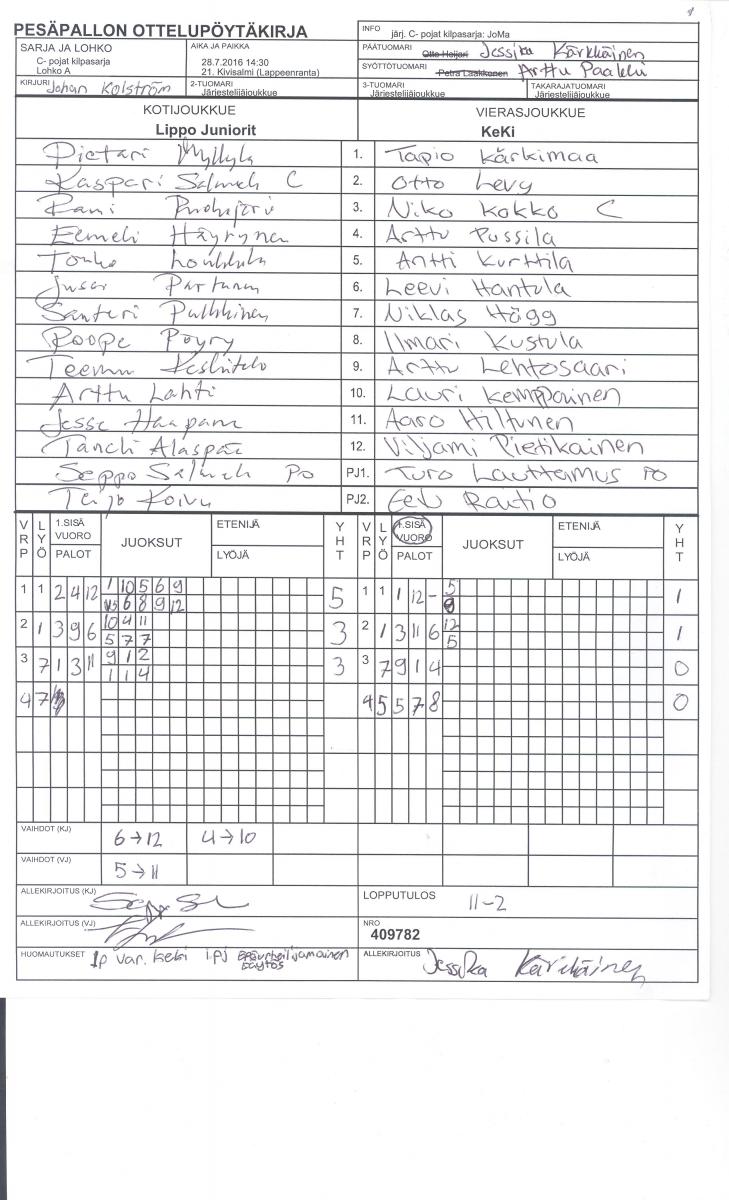 PESÄPALLON OTTELUPÖYTÄKIRJA
INFO järj. C- pojat kilpasarja: JoMa
SARJA JA LOHKO
C- pojat kilpasarja
Lohko A
AIKA JA PAIKKA
28.7.2016 14:30
21. Kivisalmi (Lappeenranta)
PÄÄTUOMARI Otto Heijari Jessika Kärkkäinen
SYÖTTÖTUOMARI Petra Laakkonen Arttu Paakki
KIRJURI Johan Kolström
2-TUOMARI Järjestelijäjoukkue
3-TUOMARI Järjestelijäjoukkue
TAKARAJATUOMARI Järjestelijäjoukkue
KOTIJOUKKUE VIERASJOUKKUE
Lippo Juniorit KeKi
Pietari Myllylä 1. Tapio Kärkimaa
Kaspari Salmela C 2. Otto Levy
Rami 3. Niko Kokko C
Eemeli Häyrynen 4. Arttu Pussila
5. Antti Kurttila
Partanen 6. Leevi Hantula
Santeri Pulkkinen 7. Niklas Hägg
Roope Pöyry 8. Ilmari Kustula
Teemu 9. Arttu Lehtosaari
Arttu Lahti 10. Lauri Kemppainen
Jesse Haapana 11. Aaro Hiltunen
Alaspää 12. Viljami Pietikäinen
Seppo Salmela PJ1. Turo Lauttamus
Teijo Koivu PJ2. Eelu Rautio
VRP LYÖ 1.SISÄ VUORO PALOT JUOKSUT ETENIJÄ LYÖJÄ YHT VRP LYÖ 1.SISÄ VUORO PALOT JUOKSUT ETENIJÄ LYÖJÄ YHT
1 1 2 4 12 1 10 5 6 9 5 1 1 1 12 - 5 1
6 8 9 12
2 1 3 9 6 10 4 11 3 2 1 3 11 6 12 1
5 7 7 5
3 7 1 3 11 9 1 2 3 3 7 9 1 4 0
1 1 4
4 7 4 5 5 7 8 0
VAIHDOT (KJ) 6→12 4→10
VAIHDOT (VJ) 5→11
ALLEKIRJOITUS (KJ) LOPPUTULOS 11-2
ALLEKIRJOITUS (VJ) NRO
409782
HUOMAUTUKSET 1p var. keki 1.pj epäurheilijamainen käytös
ALLEKIRJOITUS Jessika Kärkkäinen